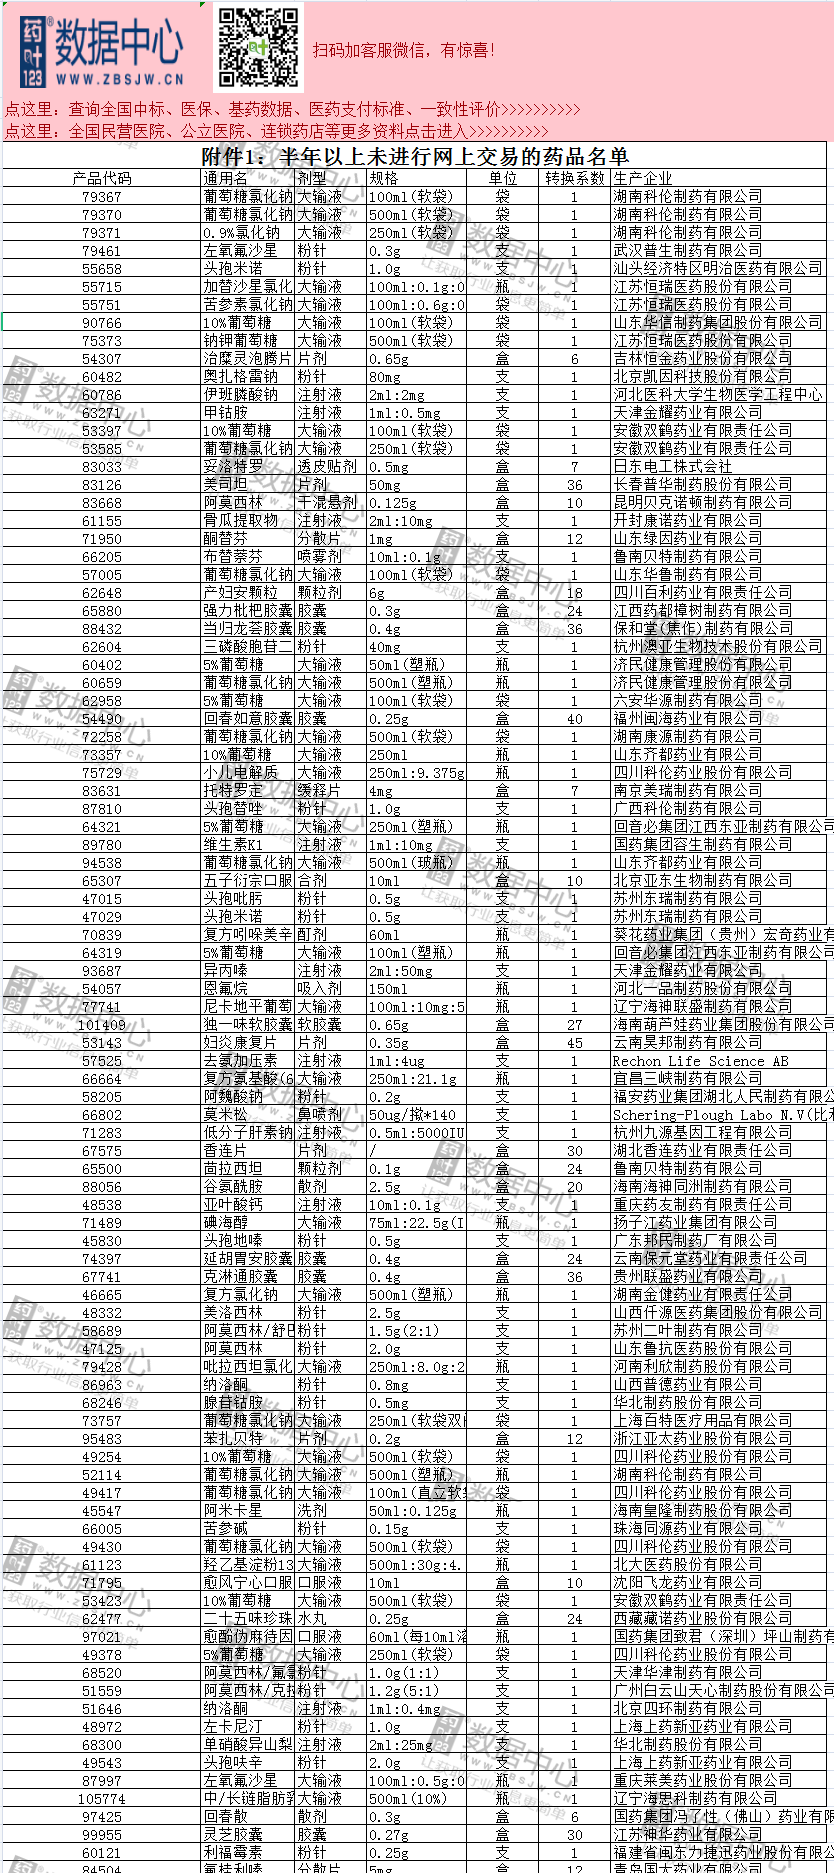 药叶123® 数据中心
WWW.ZBSJW.CN
扫码加客服微信，有惊喜！
点这里：查询全国中标、医保、基药数据、医药支付标准、一致性评价>>>>>>>>>>
点这里：全国民营医院、公立医院、连锁药店等更多资料点击进入>>>>>>>>>>
附件1：半年以上未进行网上交易的药品名单
产品代码 通用名 剂型 规格 单位 转换系数 生产企业
79367 葡萄糖氯化钠 大输液 100ml(软袋) 袋 1 湖南科伦制药有限公司
79370 葡萄糖氯化钠 大输液 500ml(软袋) 袋 1 湖南科伦制药有限公司
79371 0.9%氯化钠 大输液 250ml(软袋) 袋 1 湖南科伦制药有限公司
79461 左氧氟沙星 粉针 0.3g 支 1 武汉普生制药有限公司
55658 头孢米诺 粉针 1.0g 支 1 汕头经济特区明治医药有限公司
55715 加替沙星氯化 大输液 100ml:0.1g:0 瓶 1 江苏恒瑞医药股份有限公司
55751 苦参素氯化钠 大输液 100ml:0.6g:0 袋 1 江苏恒瑞医药股份有限公司
90766 10%葡萄糖 大输液 100ml(软袋) 袋 1 山东华信制药集团股份有限公司
75373 钠钾葡萄糖 大输液 500ml(软袋) 袋 1 江苏恒瑞医药股份有限公司
54307 治糜灵泡腾片 片剂 0.65g 盒 6 吉林恒金药业股份有限公司
60482 奥扎格雷钠 粉针 80mg 支 1 北京凯因科技股份有限公司
60786 伊班膦酸钠 注射液 2ml:2mg 支 1 河北医科大学生物医学工程中心
63271 甲钴胺 注射液 1ml:0.5mg 支 1 天津金耀药业有限公司
53397 10%葡萄糖 大输液 100ml(软袋) 袋 1 安徽双鹤药业有限责任公司
53585 葡萄糖氯化钠 大输液 250ml(软袋) 袋 1 安徽双鹤药业有限责任公司
83033 妥洛特罗 透皮贴剂 0.5mg 盒 7 日东电工株式会社
83126 美司坦 片剂 50mg 盒 36 长春普华制药股份有限公司
83668 阿莫西林 干混悬剂 0.125g 盒 10 昆明贝克诺顿制药有限公司
61155 骨瓜提取物 注射液 2ml:10mg 支 1 开封康诺药业有限公司
71950 酮替芬 分散片 1mg 盒 12 山东绿因药业有限公司
66205 布替萘芬 喷雾剂 10ml:0.1g 支 1 鲁南贝特制药有限公司
57005 葡萄糖氯化钠 大输液 100ml(软袋) 袋 1 山东华鲁制药有限公司
62648 产妇安颗粒 颗粒剂 6g 盒 18 四川百利药业有限责任公司
65880 强力枇杷胶囊 胶囊 0.3g 盒 24 江西药都樟树制药有限公司
88432 当归龙荟胶囊 胶囊 0.4g 盒 36 保和堂(焦作)制药有限公司
62604 三磷酸胞苷二 粉针 40mg 支 1 杭州澳亚生物技术股份有限公司
60402 5%葡萄糖 大输液 50ml(塑瓶) 瓶 1 济民健康管理股份有限公司
60659 葡萄糖氯化钠 大输液 500ml(塑瓶) 瓶 1 济民健康管理股份有限公司
62958 5%葡萄糖 大输液 100ml(软袋) 袋 1 六安华源制药有限公司
54490 回春如意胶囊 胶囊 0.25g 盒 40 福州闽海药业有限公司
72258 葡萄糖氯化钠 大输液 500ml(软袋) 袋 1 湖南康源制药有限公司
73357 10%葡萄糖 大输液 250ml 瓶 1 山东齐都药业有限公司
75729 小儿电解质 大输液 250ml:9.375g 瓶 1 四川科伦药业股份有限公司
83631 托特罗定 缓释片 4mg 盒 7 南京美瑞制药有限公司
87810 头孢替唑 粉针 1.0g 支 1 广西科伦制药有限公司
64321 5%葡萄糖 大输液 250ml(塑瓶) 瓶 1 回音必集团江西东亚制药有限公司
89780 维生素K1 注射液 1ml:10mg 支 1 国药集团容生制药有限公司
94538 葡萄糖氯化钠 大输液 500ml(玻瓶) 瓶 1 山东齐都药业有限公司
65307 五子衍宗口服 合剂 10ml 盒 10 北京亚东生物制药有限公司
47015 头孢吡肟 粉针 0.5g 支 1 苏州东瑞制药有限公司
47029 头孢米诺 粉针 0.5g 支 1 苏州东瑞制药有限公司
70839 复方吲哚美辛 酊剂 60ml 瓶 1 葵花药业集团（贵州）宏奇药业有
64319 5%葡萄糖 大输液 100ml(塑瓶) 瓶 1 回音必集团江西东亚制药有限公司
93687 异丙嗪 注射液 2ml:50mg 支 1 天津金耀药业有限公司
54057 恩氟烷 吸入剂 150ml 瓶 1 河北一品制药股份有限公司
77741 尼卡地平葡萄 大输液 100ml:10mg:5 瓶 1 辽宁海神联盛制药有限公司
101409 独一味软胶囊 软胶囊 0.65g 盒 27 海南葫芦娃药业集团股份有限公司
53143 妇炎康复片 片剂 0.35g 盒 45 云南昊邦制药有限公司
57525 去氨加压素 注射液 1ml:4ug 支 1 Rechon Life Science AB
66664 复方氨基酸(6 大输液 250ml:21.1g 瓶 1 宜昌三峡制药有限公司
58205 阿魏酸钠 粉针 0.2g 支 1 福安药业集团湖北人民制药有限公
66802 莫米松 鼻喷剂 50ug/揿*140 支 1 Schering-Plough Labo N.V(比利
71283 低分子肝素钠 注射液 0.5ml:5000IU 支 1 杭州九源基因工程有限公司
67575 香连片 片剂 / 盒 30 湖北香连药业有限责任公司
65500 茴拉西坦 颗粒剂 0.1g 盒 24 鲁南贝特制药有限公司
88056 谷氨酰胺 散剂 2.5g 盒 20 海南海神同洲制药有限公司
48538 亚叶酸钙 注射液 10ml:0.1g 支 1 重庆药友制药有限责任公司
71489 碘海醇 大输液 75ml:22.5g(I 瓶 1 扬子江药业集团有限公司
45830 头孢地嗪 粉针 0.5g 支 1 广东邦民制药厂有限公司
74397 延胡胃安胶囊 胶囊 0.4g 盒 24 云南保元堂药业有限责任公司
67741 克淋通胶囊 胶囊 0.4g 盒 36 贵州联盛药业有限公司
46665 复方氯化钠 大输液 500ml(塑瓶) 瓶 1 湖南金健药业有限责任公司
48332 美洛西林 粉针 2.5g 支 1 山西仟源医药集团股份有限公司
58689 阿莫西林/舒巴 粉针 1.5g(2:1) 支 1 苏州二叶制药有限公司
47125 阿莫西林 粉针 2.0g 支 1 山东鲁抗医药股份有限公司
79428 吡拉西坦氯化 大输液 250ml:8.0g:2 瓶 1 河南利欣制药股份有限公司
86963 纳洛酮 粉针 0.8mg 支 1 山西普德药业有限公司
68246 腺苷钴胺 粉针 0.5mg 支 1 华北制药股份有限公司
73757 葡萄糖氯化钠 大输液 250ml(软袋双 袋 1 上海百特医疗用品有限公司
95483 苯扎贝特 片剂 0.2g 盒 12 浙江亚太药业股份有限公司
49254 10%葡萄糖 大输液 500ml(软袋) 袋 1 四川科伦药业股份有限公司
52114 葡萄糖氯化钠 大输液 500ml(塑瓶) 瓶 1 湖南科伦制药有限公司
49417 葡萄糖氯化钠 大输液 100ml(直立软 袋 1 四川科伦药业股份有限公司
45547 阿米卡星 洗剂 50ml:0.125g 瓶 1 海南皇隆制药股份有限公司
66005 苦参碱 粉针 0.15g 支 1 珠海同源药业有限公司
49430 葡萄糖氯化钠 大输液 500ml(软袋) 袋 1 四川科伦药业股份有限公司
61123 羟乙基淀粉13 大输液 500ml:30g:4. 瓶 1 北大医药股份有限公司
71795 愈风宁心口服 口服液 10ml 盒 10 沈阳飞龙药业有限公司
53423 10%葡萄糖 大输液 500ml(软袋) 袋 1 安徽双鹤药业有限责任公司
62477 二十五味珍珠 水丸 0.25g 盒 24 西藏藏诺药业股份有限公司
97021 愈酚伪麻待因 口服液 60ml(每10ml溶 瓶 1 国药集团致君（深圳）坪山制药有
49378 5%葡萄糖 大输液 250ml(软袋) 袋 1 四川科伦药业股份有限公司
68520 阿莫西林/氟氯 粉针 1.0g(1:1) 支 1 天津华津制药有限公司
51559 阿莫西林/克拉 粉针 1.2g(5:1) 支 1 广州白云山天心制药股份有限公司
51646 纳洛酮 注射液 1ml:0.4mg 支 1 北京四环制药有限公司
48972 左卡尼汀 粉针 1.0g 支 1 上海上药新亚药业有限公司
68300 单硝酸异山梨 注射液 2ml:25mg 支 1 华北制药股份有限公司
49543 头孢呋辛 粉针 2.0g 支 1 上海上药新亚药业有限公司
87997 左氧氟沙星 大输液 100ml:0.5g:0 瓶 1 重庆莱美药业股份有限公司
105774 中/长链脂肪乳 大输液 500ml(10%) 瓶 1 辽宁海思科制药有限公司
97425 回春散 散剂 0.3g 盒 6 国药集团冯了性（佛山）药业有限
99955 灵芝胶囊 胶囊 0.27g 盒 30 江苏神华药业有限公司
60121 利福霉素 粉针 0.25g 支 1 福建省闽东力捷迅药业股份有限公
84504 氟桂利嗪 分散片 5mg 盒 12 青岛国大药业有限公司